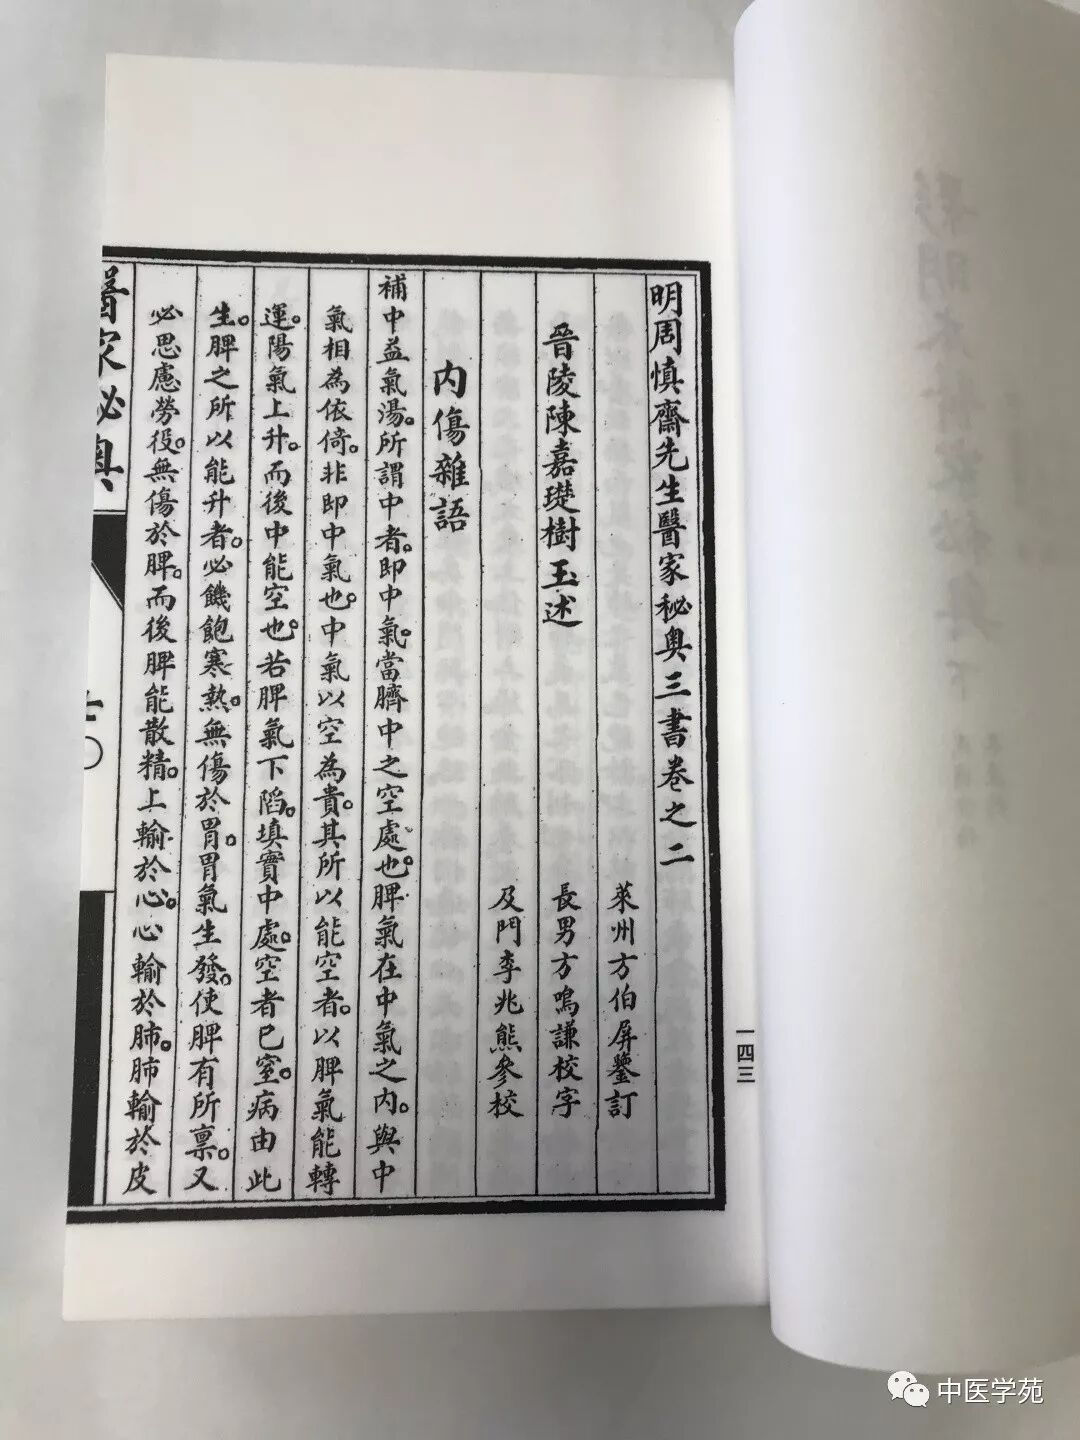 明周慎齋先生醫家秘奥三書卷之二
萊州方伯屏鑒訂
晉陵陳嘉璴樹玉述
長男方鳴謙校字
及門李兆熊參校
內傷雜語
補中益氣湯。所謂中者。即中氣。當臍中之空處也。脾氣在中氣之內。與中
氣相為依倚。非即中氣也。中氣以空為貴。其所以能空者。以脾氣能轉
運。陽氣上升。而後中能空也。若脾氣下䧟。填實中處。空者已窒。病由此
生。脾之所以能升者。必饑飽寒熱。無傷於胃。胃氣生發。使脾有所禀。又
必思慮勞役。無傷於脾。而後脾能散精。上輸於心。心輸於肺。肺輸於皮
醫家秘奥
一四三
中医学苑